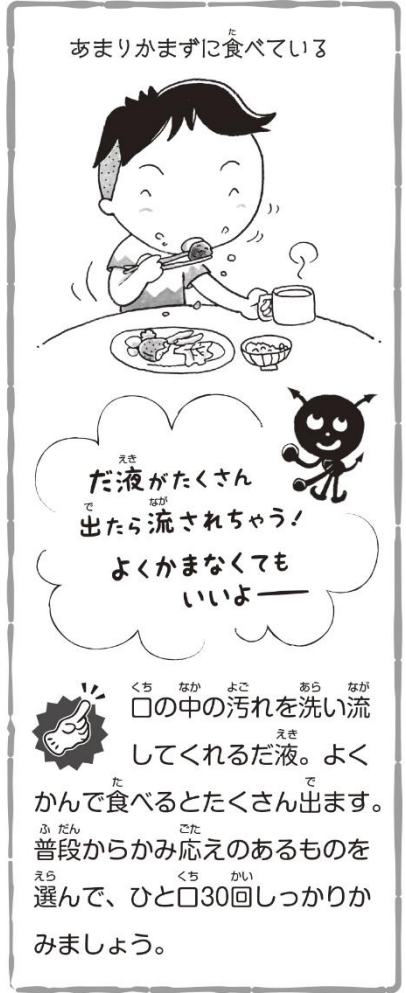 あまりかまずに食べている
だ液がたくさん
出たら流されちゃう!
よくかまなくても
いいよー
口の中の汚れを洗い流
してくれるだ液。よく
かんで食べるとたくさん出ます。
普段からかみ応えのあるものを
選んで、ひと口30回しっかりか
みましょう。